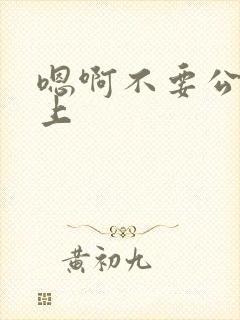 嗯啊不要公
上
黄初九